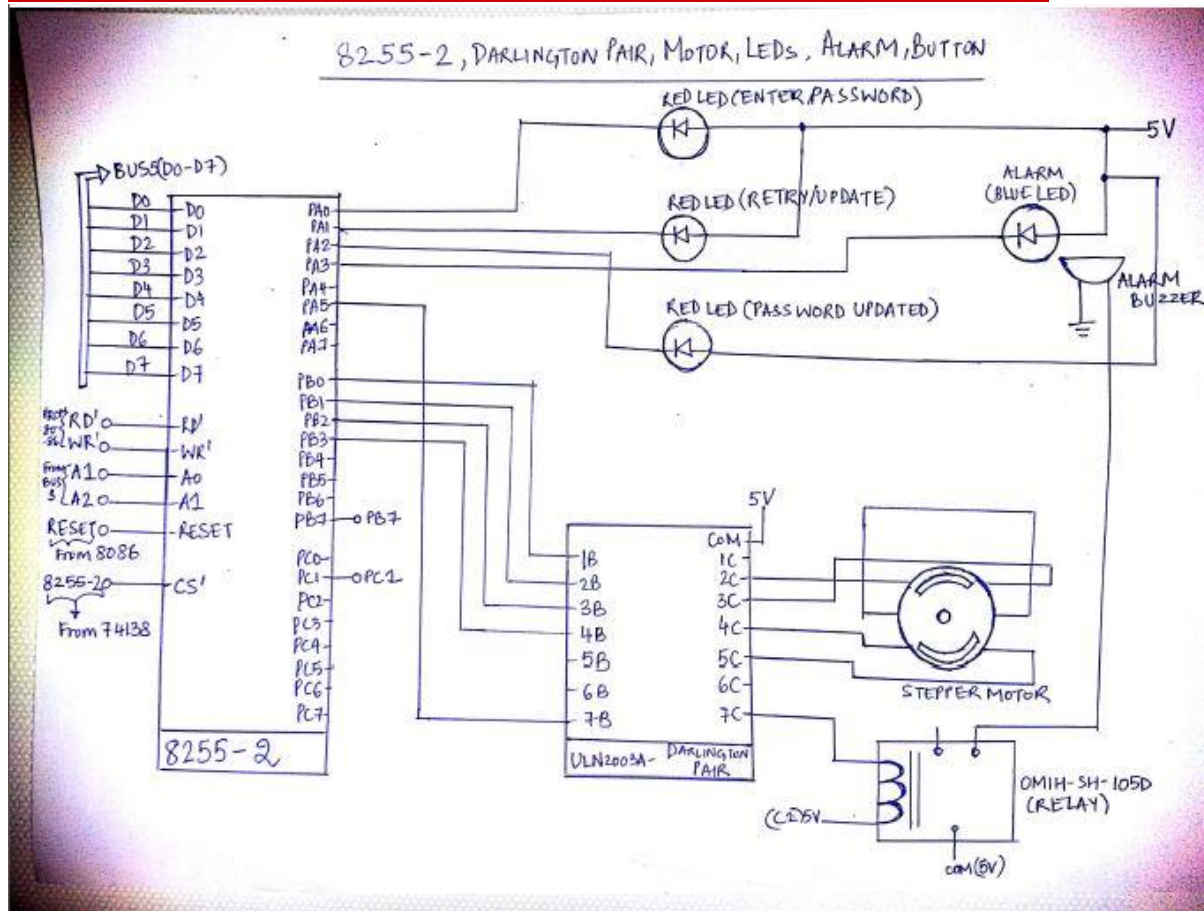 8255-2, DARLINGTON PAIR, MOTOR, LEDs, ALARM, BUTTON
RED LED (ENTER PASSWORD)
5V
BUS5(D0-D7)
ALARM
(BLUE LED)
RED LED (RETRY/UPDATE)
ALARM
BUZZER
RED LED (PASSWORD UPDATED)
D0
D1
D2
D3
D4
D5
D6
D7
D0
D1
D2
D3
D4
D5
D6
D7
RD'
WR'
A1
A2
RESET
From 8086
8255-2
From 74138
From
BUS
3
RD'
WR'
A0
A1
RESET
CS'
PA0
PA1
PA2
PA3
PA4
PA5
PA6
PA7
PB0
PB1
PB2
PB3
PB4
PB5
PB6
PB7
PB7
PC0
PC1
PC1
PC2
PC3
PC4
PC5
PC6
PC7
8255-2
5V
1B
2B
3B
4B
5B
6B
7B
COM
1C
2C
3C
4C
5C
6C
7C
ULN2003A-
DARLINGTON
PAIR
STEPPER MOTOR
OMIH-SH-105D
(RELAY)
5V
COM(5V)